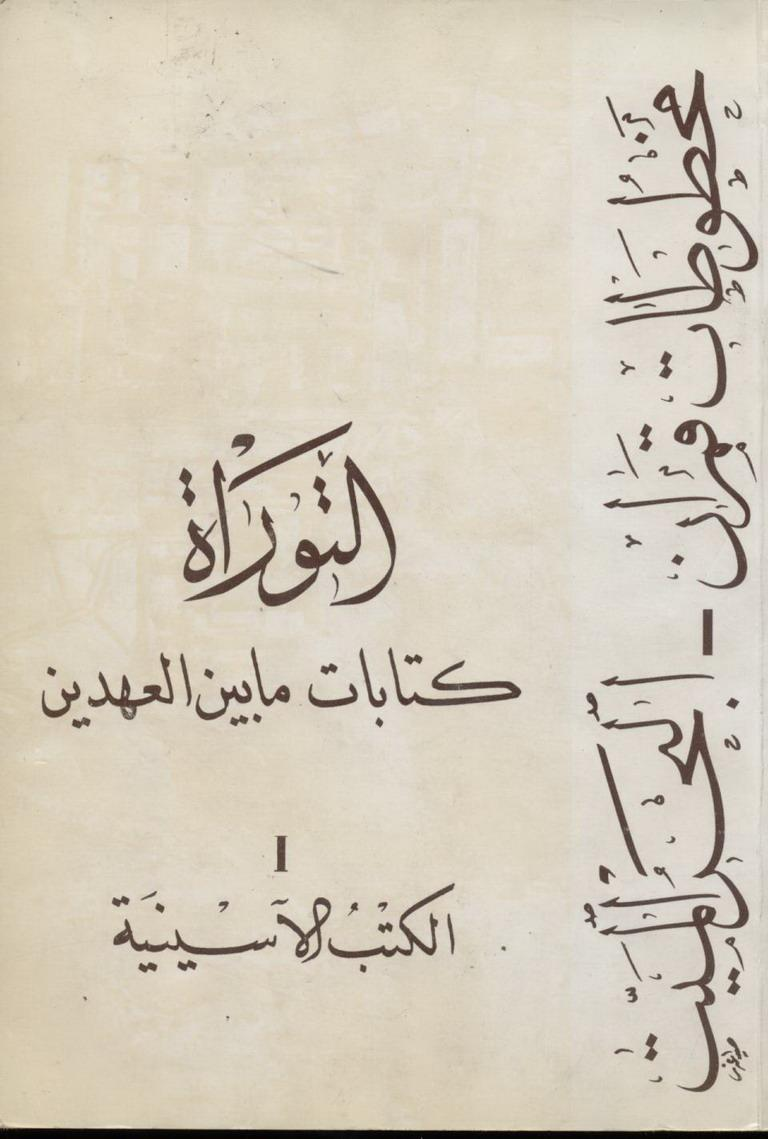 مخطوطات قمران - البحر الميت
التوراة
كتابات مابين العهدين
I
الكتب الآسينية